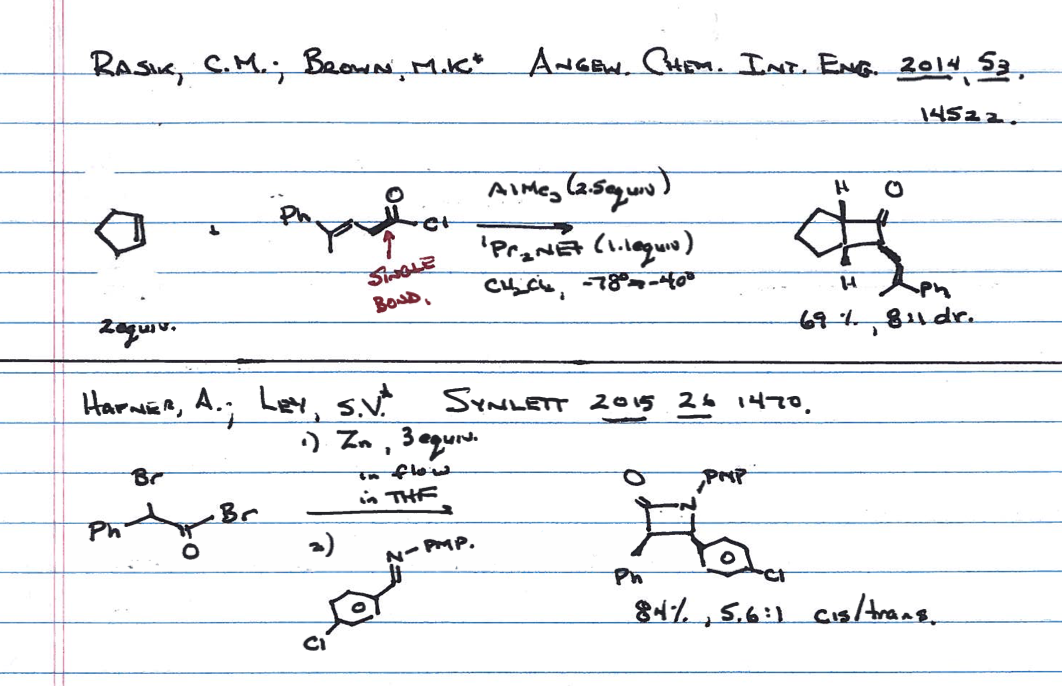 RASIK, C.M.; BROWN, M.K* ANGEW. CHEM. INT. ENG. 2014, 53,
14522.
AlMe3 (2.5equiv)
iPr2NEt (1.1equiv)
CH2Cl2, -78°→-40°
Ph
O
Cl
SINGLE
BOND.
2equiv.
H
O
H
Ph
69%, 8:1 dr.
HAFNER, A.; LEY, S.V.* SYNLETT 2015 26 1470.
1) Zn, 3equiv.
in flow
in THF
2)
Br
Ph
Br
O
N-PMP.
Cl
O
PMP
N
Ph
Cl
84%, 5.6:1 cis/trans.